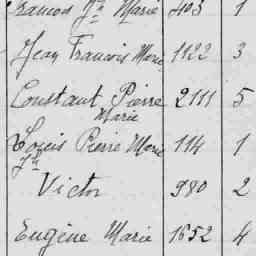 François Jh Marie 403 1
Jean François Marie 1122 3
Constant Pierre 2111 5
Marie
Louis Pierre Marie 114 1
Jh
Victor 980 2
Eugène Marie 1652 4